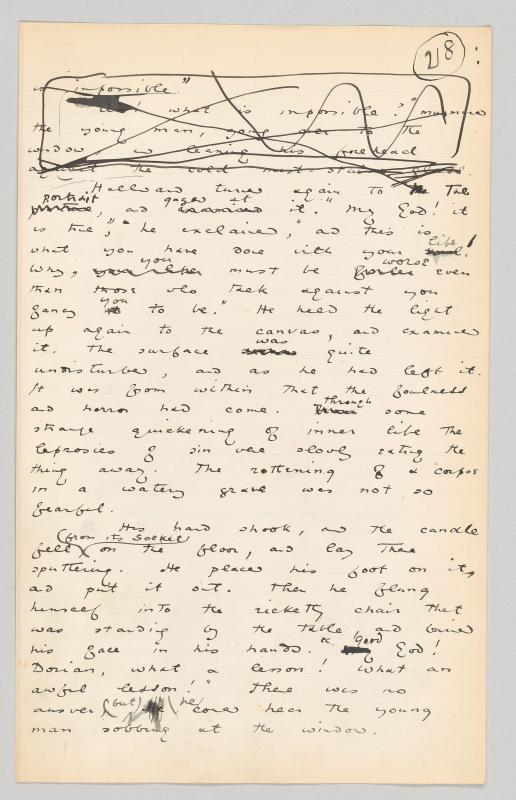 218
is impossible"
what is impossible?" murmured
the young man, going over to the
window, and leaning his forehead
against the cold mist-stained glass.
Hallward turned again to the
portrait, and gazed at it. "My God! it
is true," he exclaimed, "and this is
what you have done with your life!
Why, you must be worse even
than those who talk against you
fancy you to be." He held the light
up again to the canvas, and examined
it. The surface was quite
undisturbed, and as he had left it.
It was from within that the foulness
and horror had come. Through some
strange quickening of inner life the
leprosies of sin were slowly eating the
thing away. The rottening of a corpse
in a watery grave was not so
fearful.
His hand shook, and the candle
fell (from its socket) on the floor, and lay there
sputtering. He placed his foot on it,
and put it out. Then he flung
himself into the ricketty chair that
was standing by the table and buried
his face in his hands. "Good God!
Dorian, what a lesson! What an
awful lesson!" There was no
answer (but) he could hear the young
man sobbing at the window.